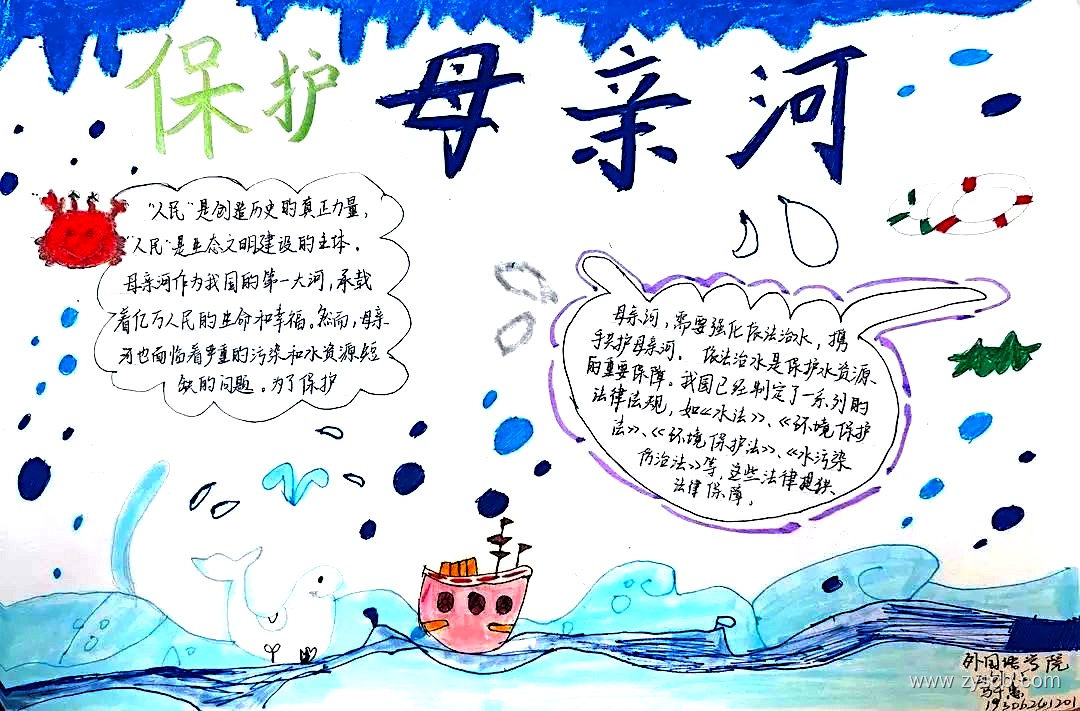 保护母亲河
“人民”是创造历史的真正力量，
“人民”是生态文明建设的主体。
母亲河作为我国的第一大河，承载
着亿万人民的生命和幸福。然而，母亲
河也面临着严重的污染和水资源短
缺的问题。为了保护
母亲河，需要强化依法治水，携
手共护母亲河。依法治水是保护水资源
的重要保障。我国已经制定了一系列的
法律法规，如《水法》、《环境保护
法》、《环境保护法》、《水污染
防治法》等，这些法律提供
法律保障。
外国语学院
19306241201
www.zyscb.com